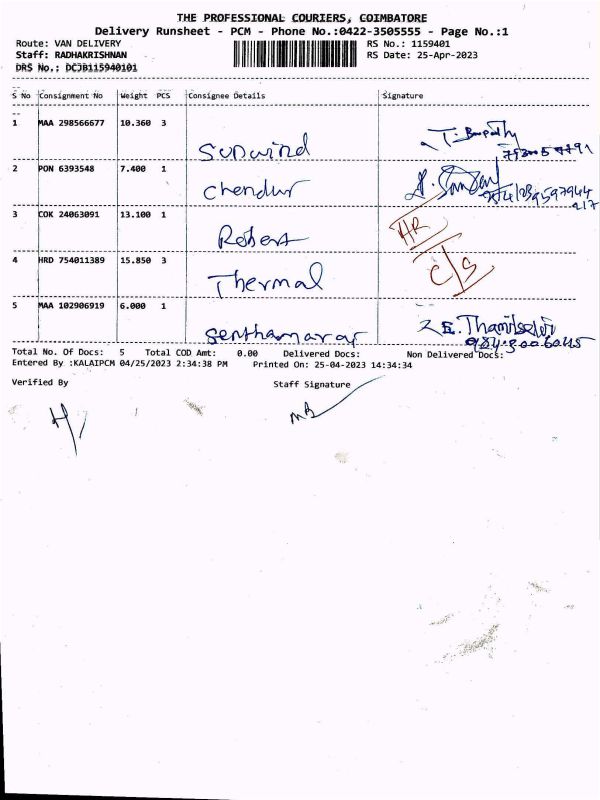 THE PROFESSIONAL COURIERS, COIMBATORE
Delivery Runsheet - PCM - Phone No.:0422-3505555 - Page No.:1
Route: VAN DELIVERY RS No.: 1159401
Staff: RADHAKRISHNAN RS Date: 25-Apr-2023
DRS No.: DCJB115940101
S No Consignment No Weight PCS Consignee Details Signature
1 MAA 298566677 10.360 3
Sunwind T. Boopathy
2 PON 6393548 7.400 1
Chendur
3 COK 24063091 13.100 1
Robert HR
4 HRD 754011389 15.850 3
Thermal C/S
5 MAA 102906919 6.000 1
Senthamarar E. Thamilselvi
Total No. Of Docs: 5 Total COD Amt: 0.00 Delivered Docs: Non Delivered Docs:
Entered By :KALAIPCM 04/25/2023 2:34:38 PM Printed On: 25-04-2023 14:34:34
Verified By Staff Signature